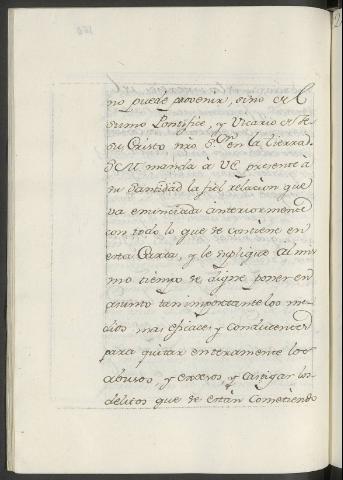 no puede provenir, sino del
sumo Pontifice, y Vicario de Je-
su Cristo nro Sr. en la tierra.
S.M. manda à VE presente à
su Santidad la fiel relacion que
va enunciada anteriormente
con todo lo que se contiene en
esta Carta, y le suplique al mis
mo tiempo se digne poner en
asunto tan importante los me-
dios mas eficaces y conducentes
para quitar enteramente los
abusos, y excesos, y castigar los
delitos que se están cometiendo